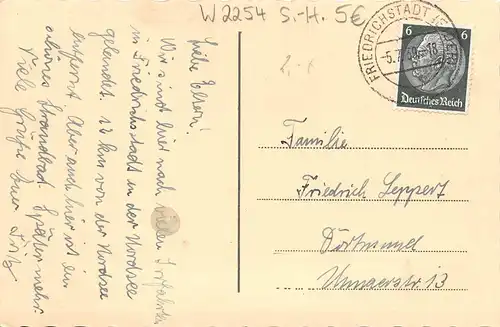 W 2254 S.-H. 5€
FRIEDRICHSTADT
6 6
Deutsches Reich
2,- €
Liebe Eltern!
Wir sind hier nach vielen Irrfahrten
in Friedrichstadt in der Nordsee
gelandet. 12 km von der Nordsee
entfernt. Aber auch hier ist ein
schönes Strandbad. Später mehr.
Viele Grüße Euer Fritz
Familie
Friedrich Leppert
Dortmund
13